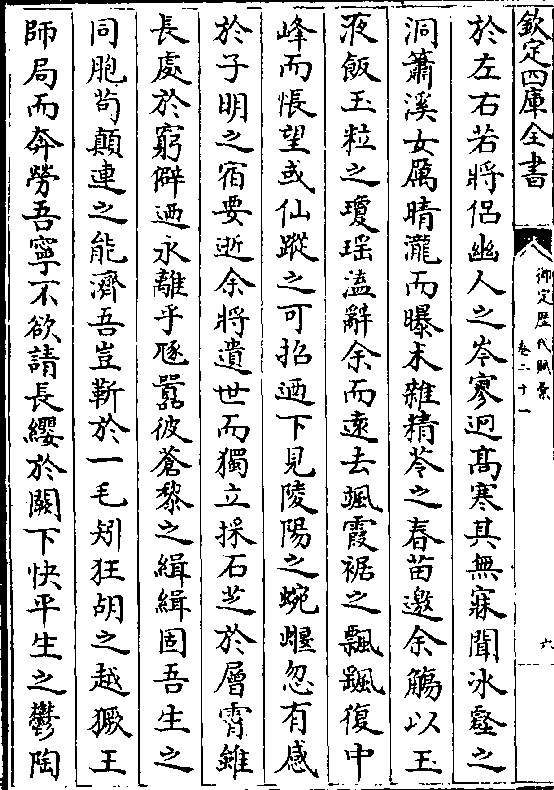 欽定四庫全書
御定歴代賦彙
卷二十一
六
於左右若將侣幽人之岑寥迥髙寒其無寐聞冰壑之
洞簫溪女厲晴瀧而曝术雜精苓之春苗邀余觴以玉
液飯玉粒之瓊瑶溘辭余而逺去颯霞裾之飄飄復中
峰而悵望或仙蹤之可招廼下見陵陽之蜿蜒忽有感
於子明之宿要逝余將遺世而獨立採石芝於層霄雖
長處於窮僻廼永離乎豗囂彼蒼黎之緝緝固吾生之
同胞茍顛連之能濟吾豈靳於一毛矧狂胡之越獗王
師局而奔勞吾寧不欲請長纓於闕下快平生之鬱陶